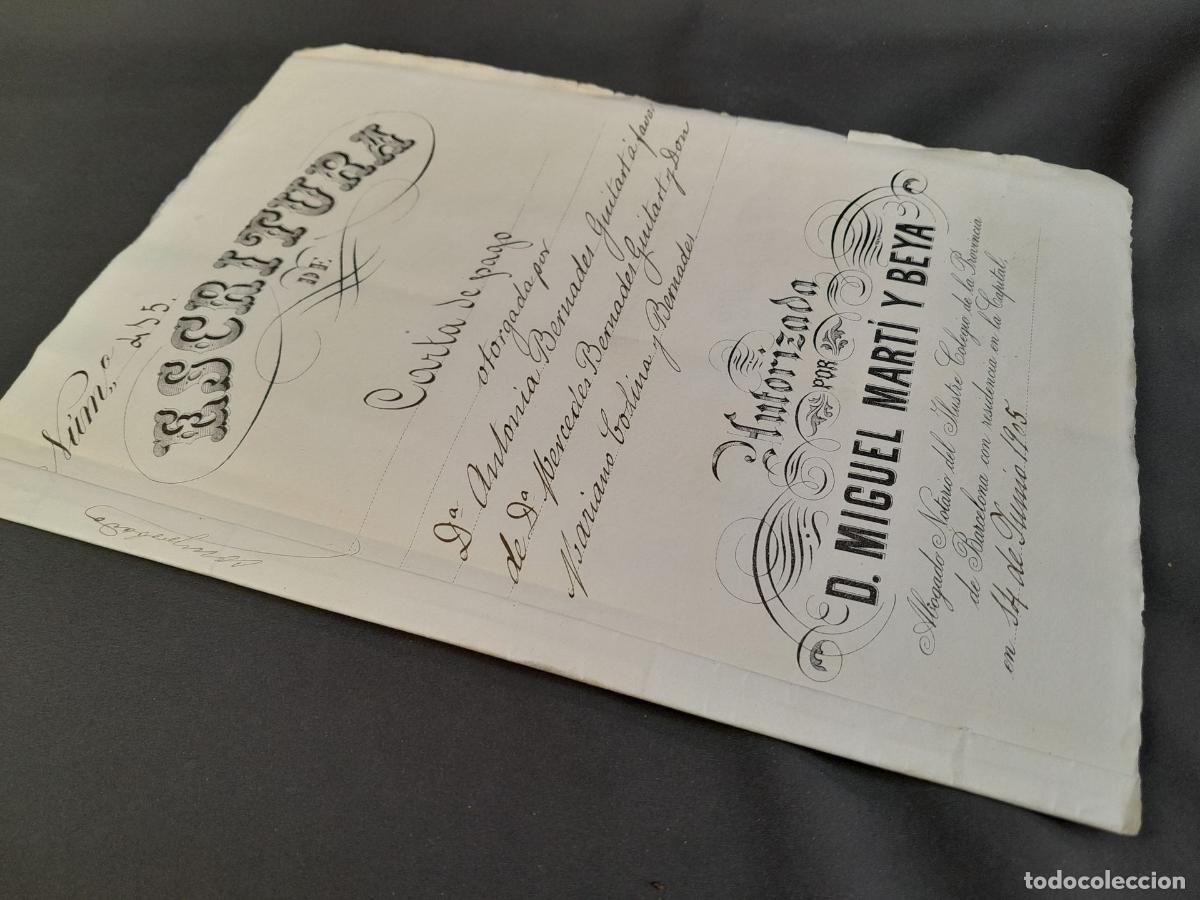 Núm.o 255.
ESCRITURA
DE
Carta de pago
otorgada por
Dª Antonia Bernades Guitart á favor
de Dª Mercedes Bernades Guitart y Don
Mariano Codina y Bernades
Autorizada
POR
D. MIGUEL MARTÍ Y BEYA
Abogado Notario del Ilustre Colegio de la Provincia
de Barcelona con residencia en la Capital,
en 14 de Junio 1905
todocoleccion